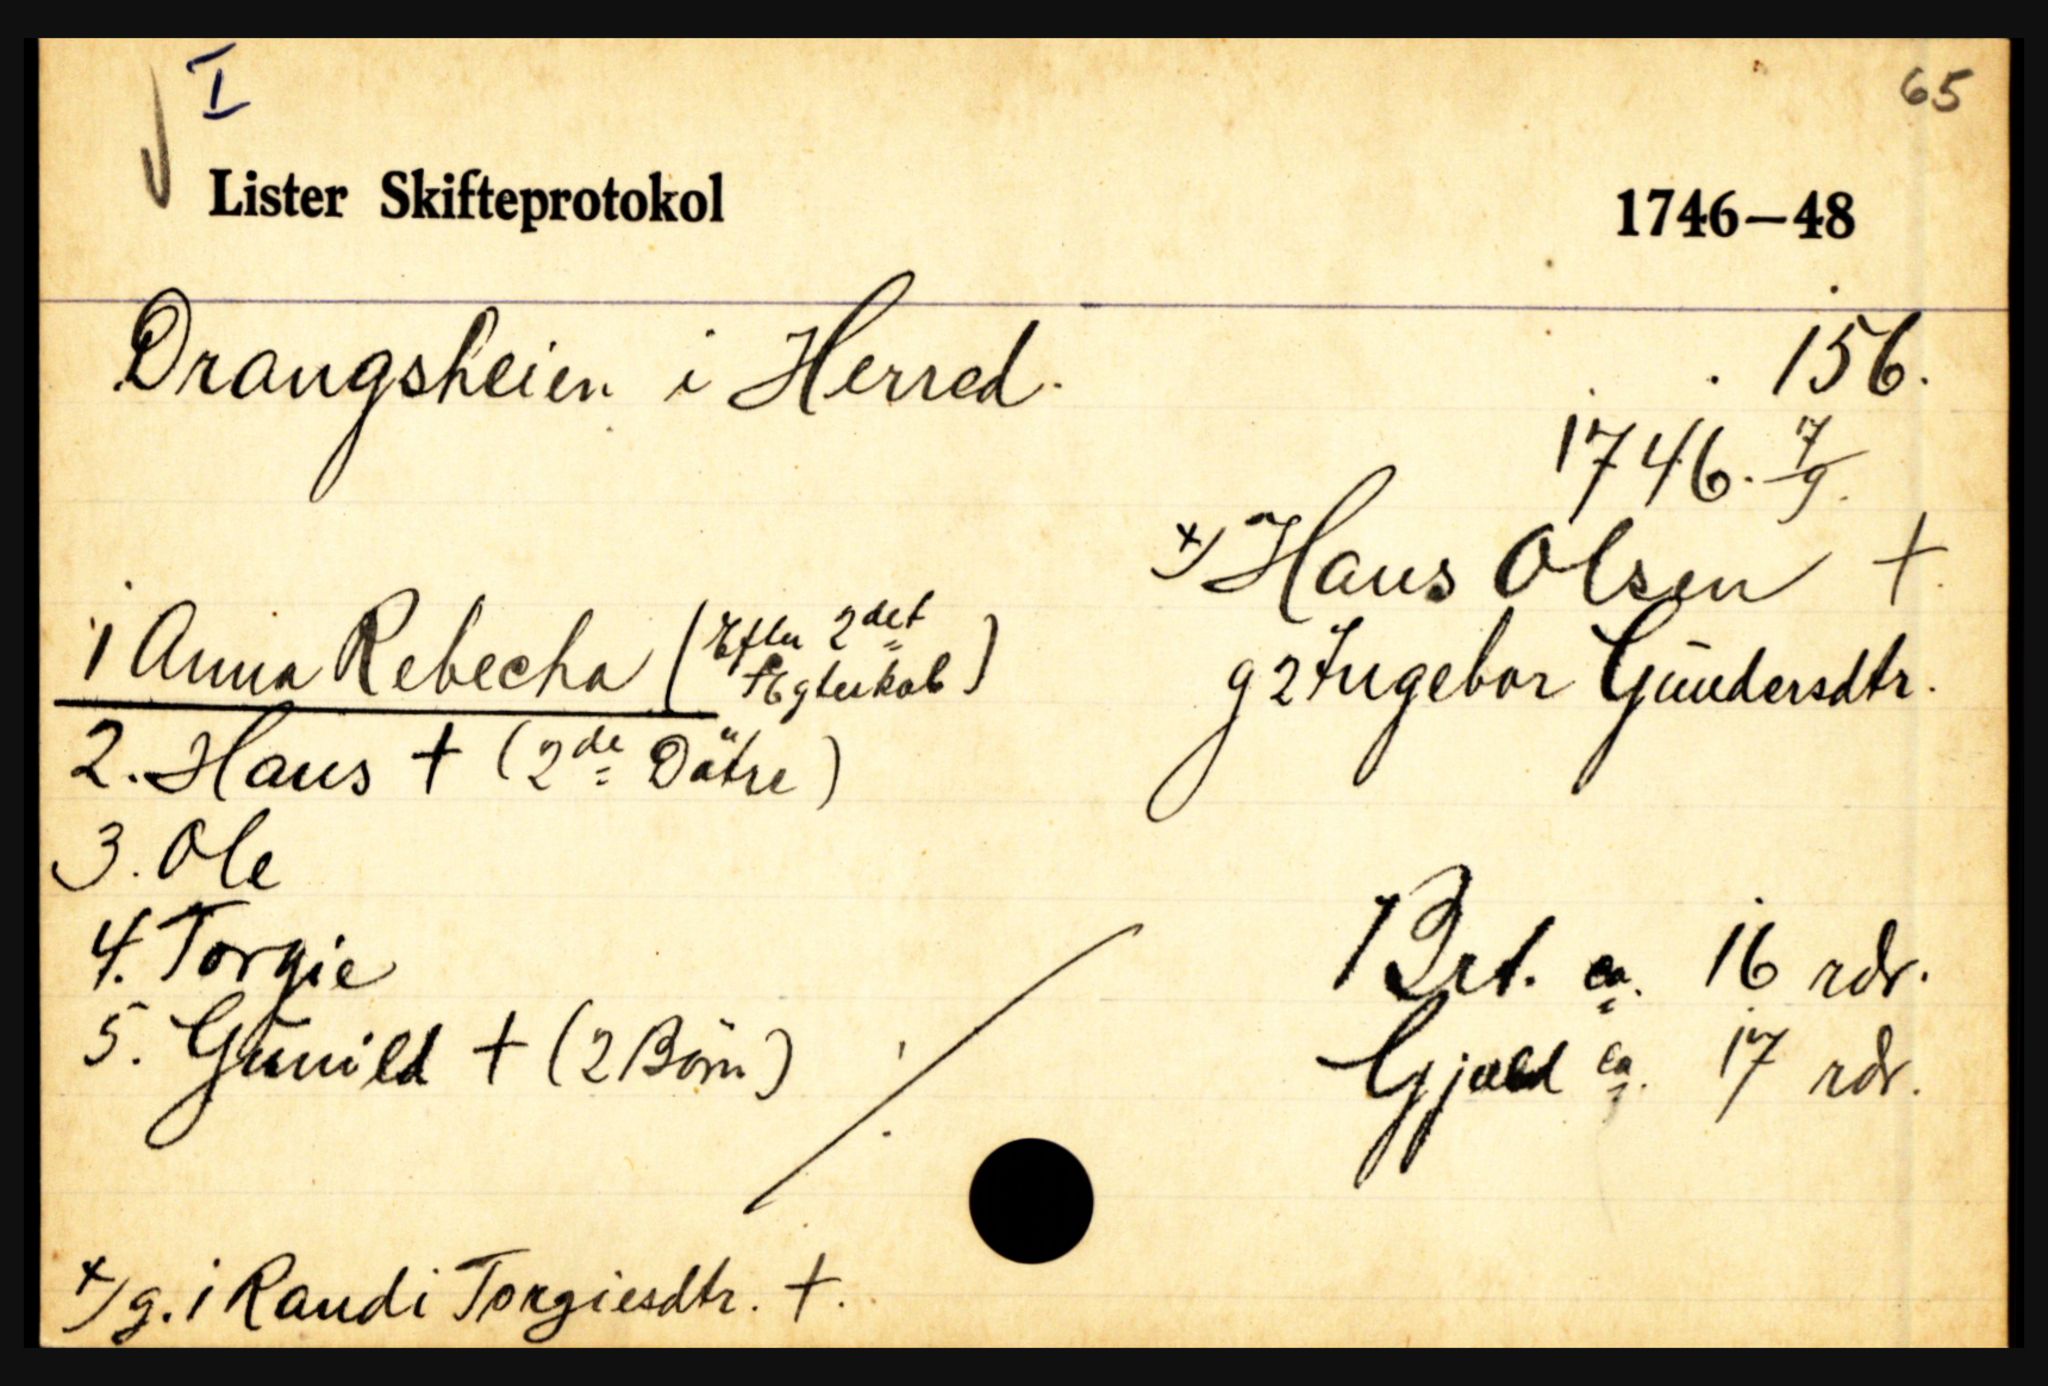 I
65
Lister Skifteprotokol 1746–48
Drangsheien i Herred. 156.
1746. 7/9.
x/ Hans Olsen +.
g 2 Ingebor Gundersdtr.
1 Anna Rebecha (Efter 2det Ægteskab)
2. Hans + (2de Döttre)
3. Ole
4. Torgie
5. Gunild + (2 Börn)
Brt. ca. 16 rdr.
Gjæld ca. 17 rdr.
x/ g. 1 Randi Torgiesdtr. +.